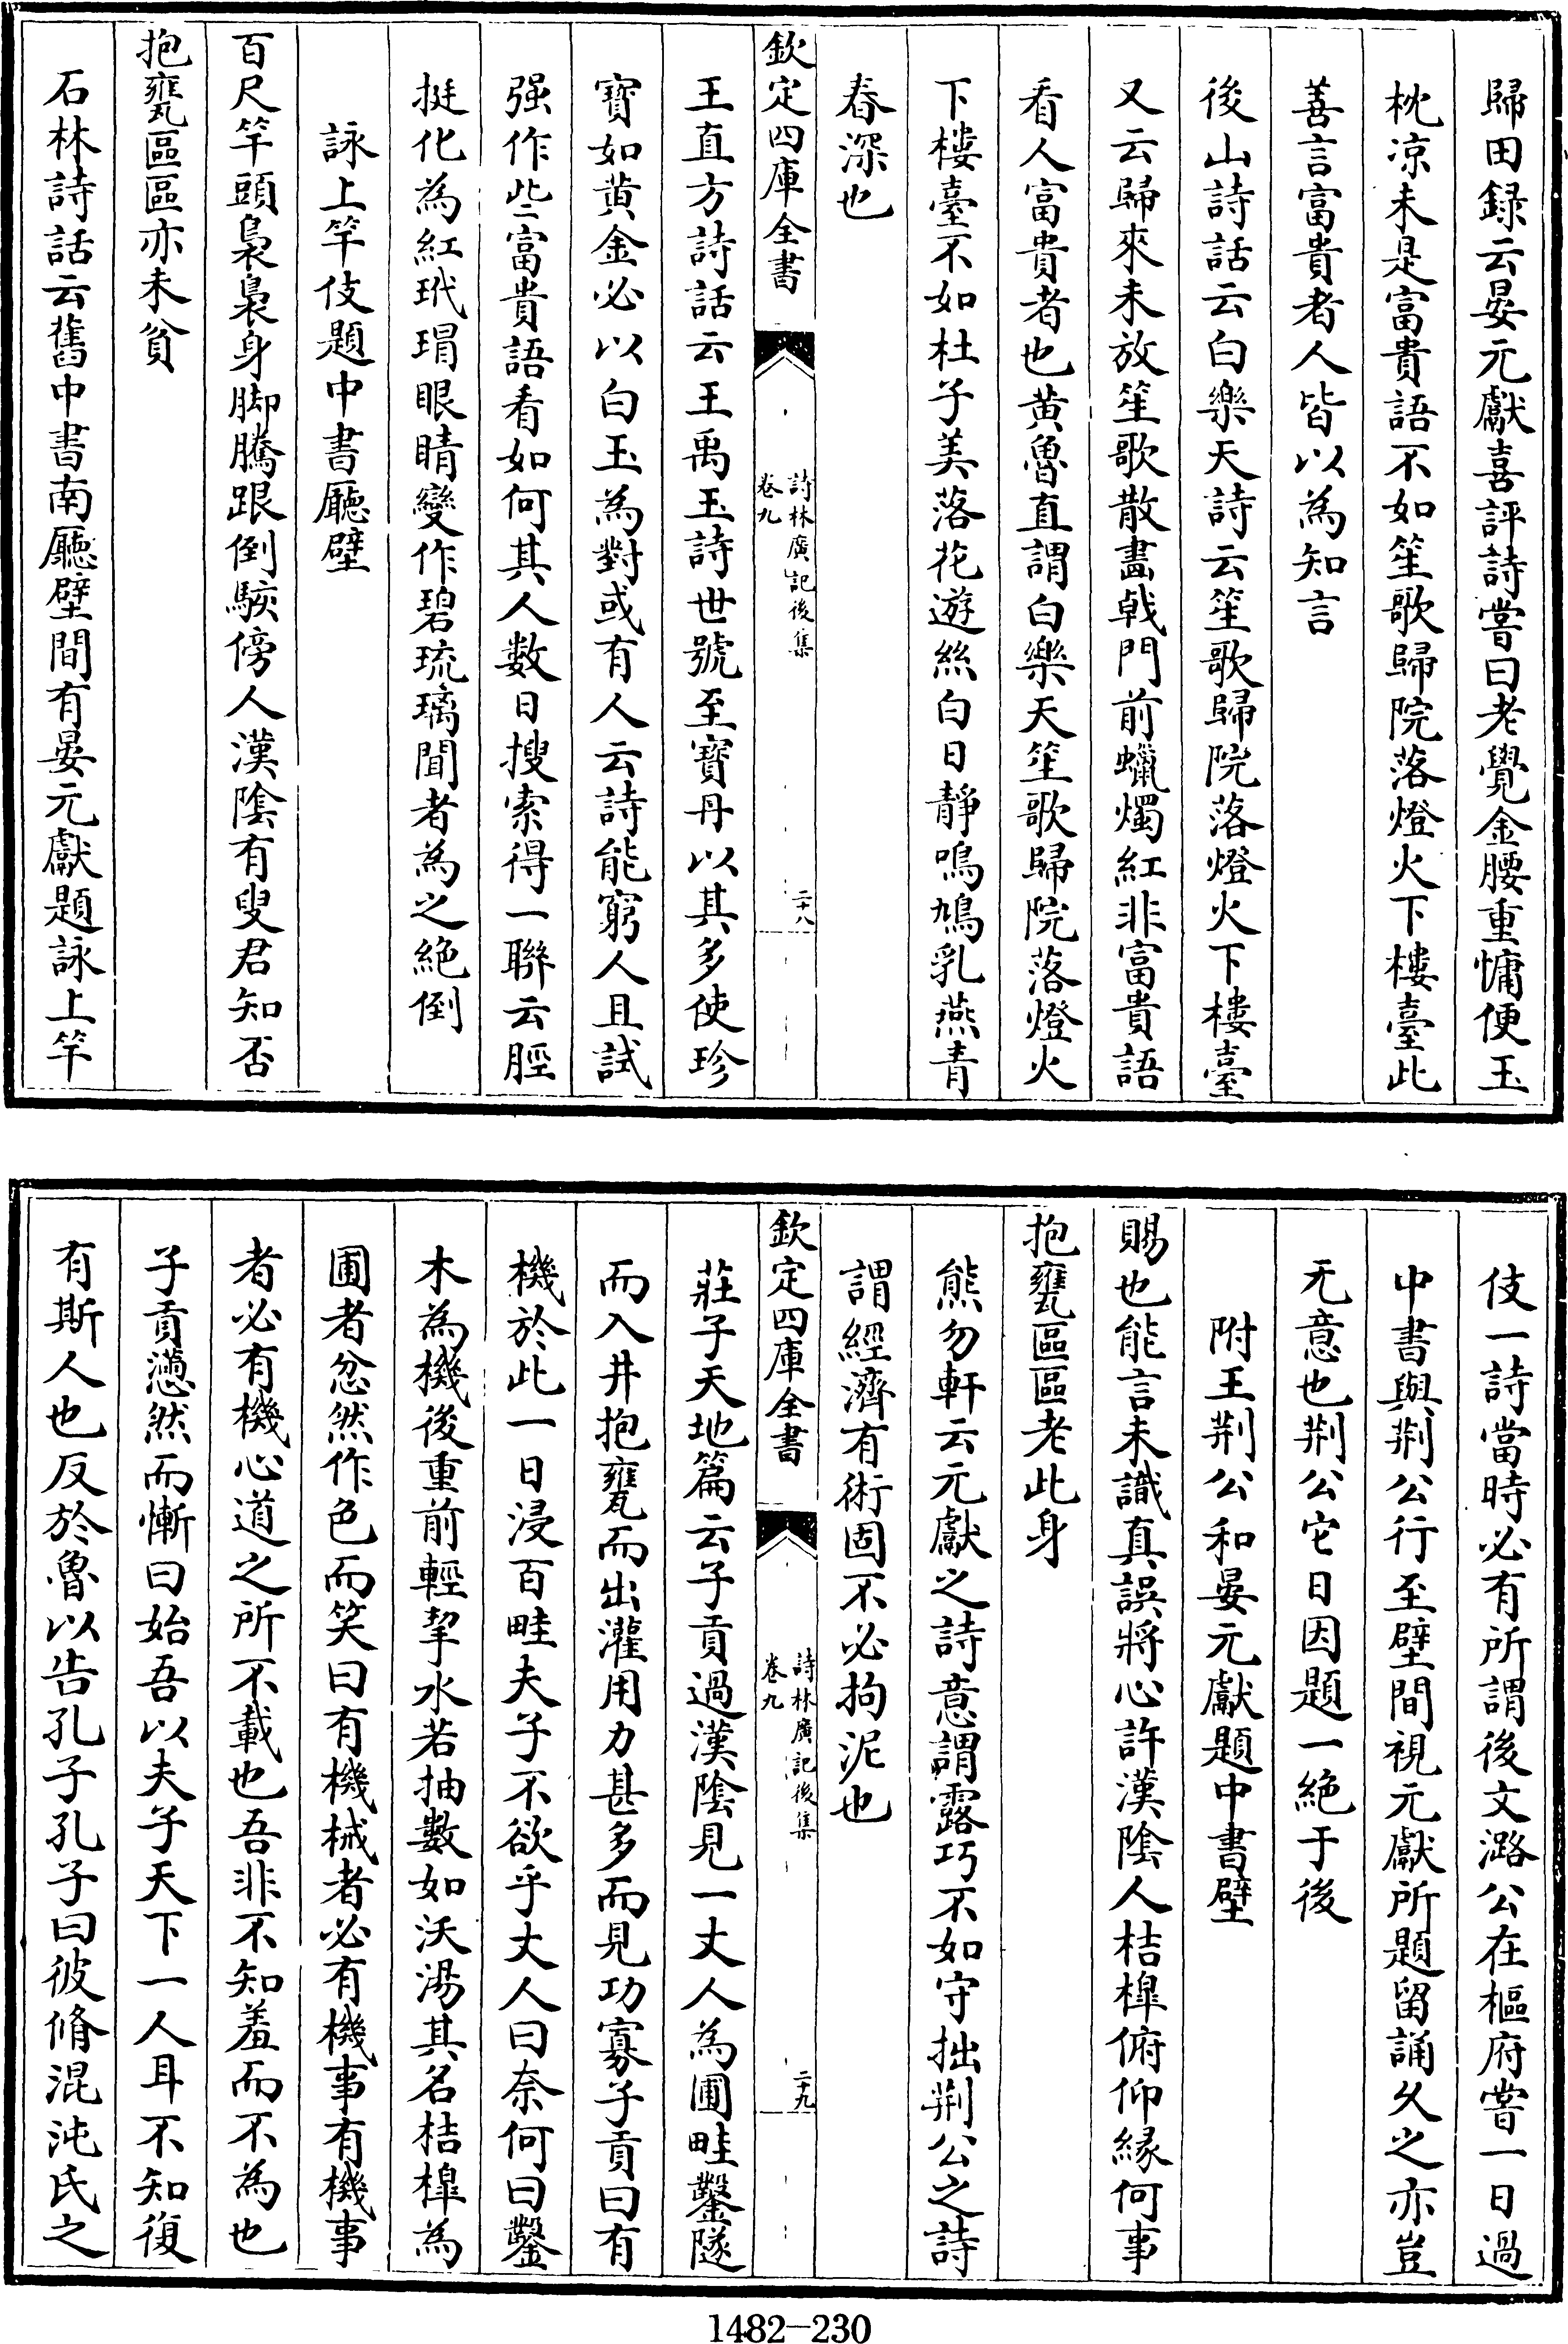 歸田録云晏元獻喜評詩嘗曰老覺金腰重慵便玉
枕凉未是富貴語不如笙歌歸院落燈火下樓臺此
善言富貴者人皆以為知言
後山詩話云白樂天詩云笙歌歸院落燈火下樓臺
又云歸來未放笙歌散畫戟門前蠟燭紅非富貴語
看人富貴者也黄魯直謂白樂天笙歌歸院落燈火
下樓臺不如杜子美落花遊絲白日靜鳴鳩乳燕青
春深也
欽定四庫全書
詩林廣記後集
卷九
二十八
王直方詩話云王禹玉詩世號至寶丹以其多使珍
寶如黄金必以白玉為對或有人云詩能窮人且試
强作些富貴語看如何其人數日搜索得一聯云脛
挺化為紅玳瑁眼睛變作碧琉璃聞者為之絶倒
詠上竿伎題中書廳壁
百尺竿頭裊裊身脚騰跟倒駭傍人漢陰有叟君知否
抱甕區區亦未貧
石林詩話云舊中書南廳壁間有晏元獻題詠上竿
伎一詩當時必有所謂後文潞公在樞府嘗一日過
中書與荆公行至壁間視元獻所題留誦久之亦豈
无意也荆公它日因題一絶于後
附王荆公和晏元獻題中書壁
賜也能言未識真誤將心許漢陰人桔槹俯仰縁何事
抱甕區區老此身
熊勿軒云元獻之詩意謂露巧不如守拙荆公之詩
謂經濟有術固不必拘泥也
欽定四庫全書
詩林廣記後集
卷九
二十九
莊子天地篇云子貢過漢陰見一丈人為圃畦鑿隧
而入井抱甕而出灌用力甚多而見功寡子貢曰有
機於此一日浸百畦夫子不欲乎丈人曰奈何曰鑿
木為機後重前輕挈水若抽數如沃湯其名桔槹為
圃者忿然作色而笑曰有機械者必有機事有機事
者必有機心道之所不載也吾非不知羞而不為也
子貢懣然而慚曰始吾以夫子天下一人耳不知復
有斯人也反於魯以告孔子孔子曰彼脩混沌氏之
1482-230